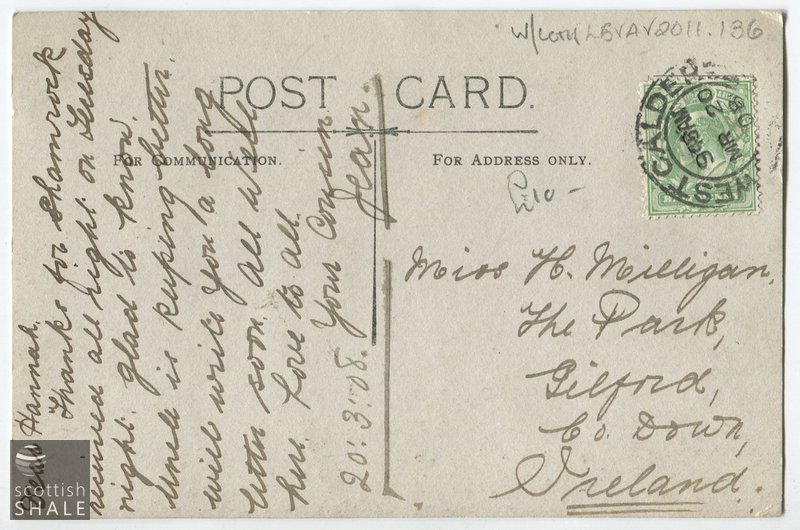 W/Loth LBVAV2011.136
POST CARD.
FOR COMMUNICATION.
FOR ADDRESS ONLY.
£10-
WEST CALDER
9 35 PM
MR 20
08
Dear Hannah.
Thanks for shamrock
received all right on Tuesday
night. glad to know
Uncle is keeping better.
will write you a long
letter soon. All well
here. Love to all.
Your Cousin
Jean.
20.3.08.
Miss H. Milligan.
The Park,
Gilford,
Co. Down,
Ireland.
scottish
SHALE